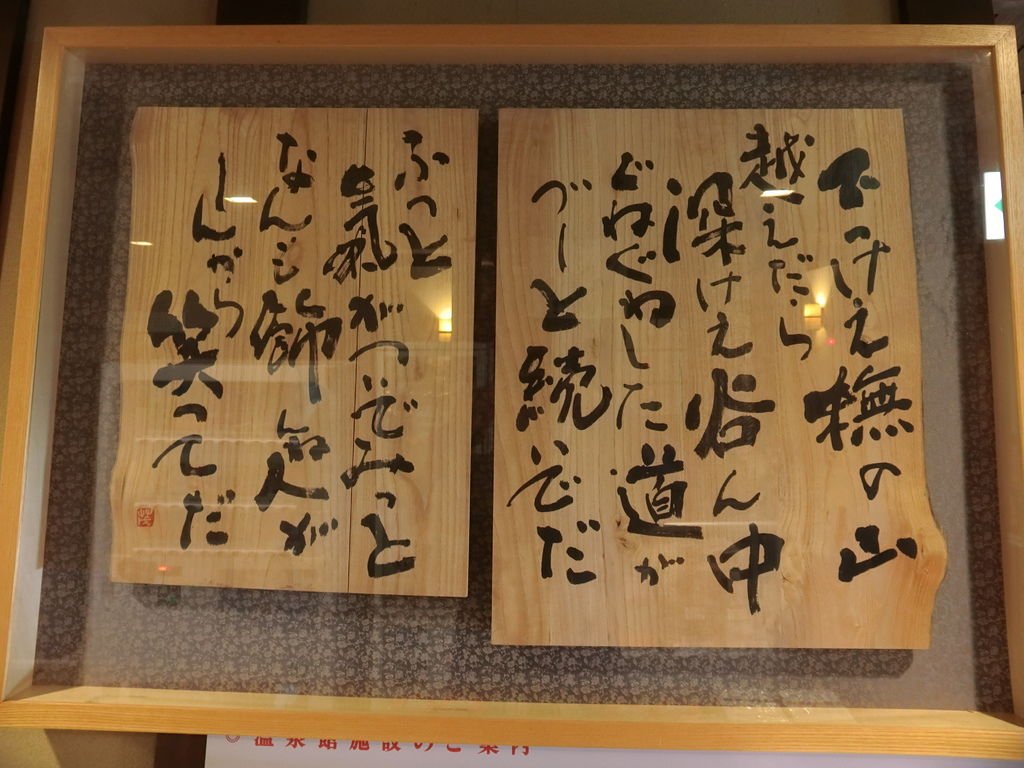 でっけえ橅の山
越えだら
深けえ谷ん中
ぐねぐねした道が
づーと続いでだ
ふっと
氣がついでみっと
なんも飾 人が
しんから
笑ってだ
◎温泉館施設のご案内